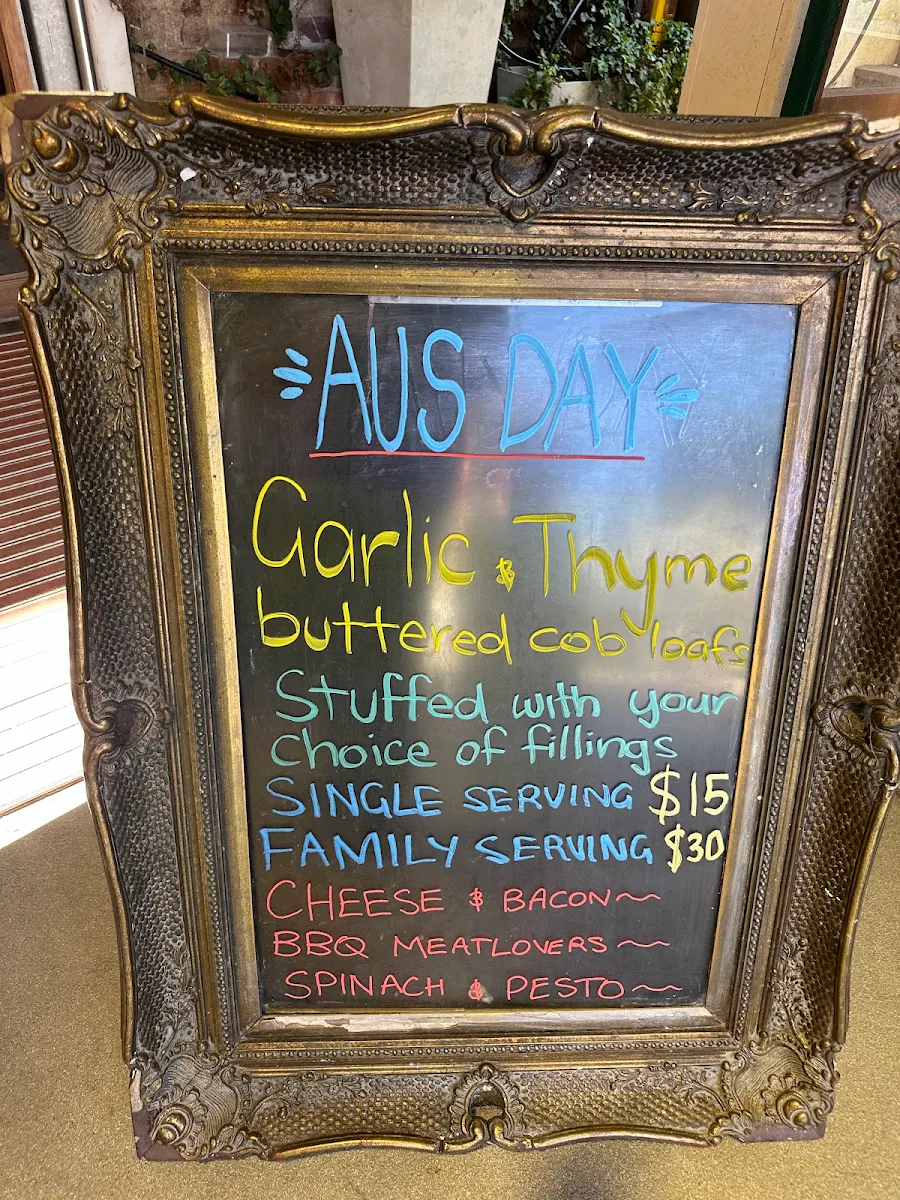 AUS DAY
Garlic & Thyme
buttered cob loafs
Stuffed with your
choice of fillings
SINGLE SERVING $15
FAMILY SERVING $30
CHEESE & BACON~
BBQ MEATLOVERS~
SPINACH & PESTO~